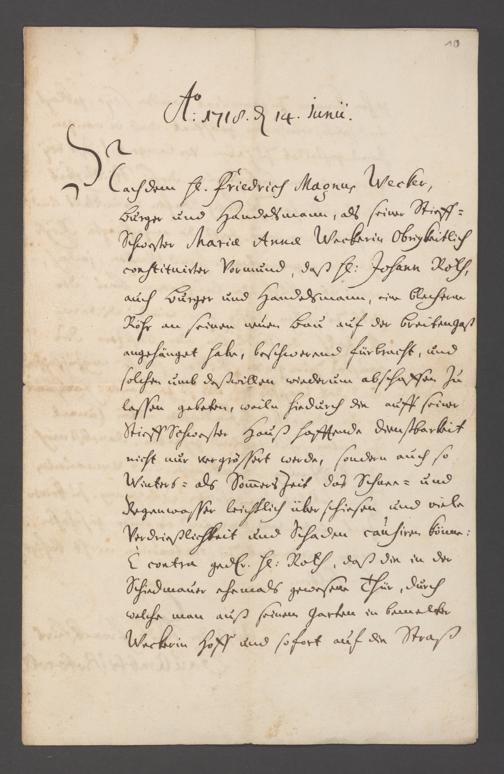 10
Ao: 1718. d 14. Junii.
Nachdem H. Friedrich Magnus Wecker,
Burger und Handelsmann, als seiner Stieff-
Schwester Mariæ Annæ Weckerin Obrigkeitlich
constituirter Vormund, daß H: Johann Roth,
auch Burger und Handelsmann, eine blecherne
Röhr an seinen neuen bau auf der breitengaß
angehänget habe, beschwerend fürbracht, und
solchen umb deßwillen wiederum abschaffen zu
lassen gebeten, weiln hiedurch die auff seiner
Stieff Schwester Hauß hafftende dienstbarkeit
nicht nur vergrössert werde, sondern auch so
Winters- als Sommers Zeit das Schnee- und
Regenwasser leichtlich überschiesen und viele
Verdrießlichkeit und Schaden causiren könne:
E contra gedr. H: Roth, daß die in der
Schiedmauer ehemals gewesene Thür, durch
welche man auß seinem Garten in bemelter
Weckerin Hoff und sofort auf die Straß